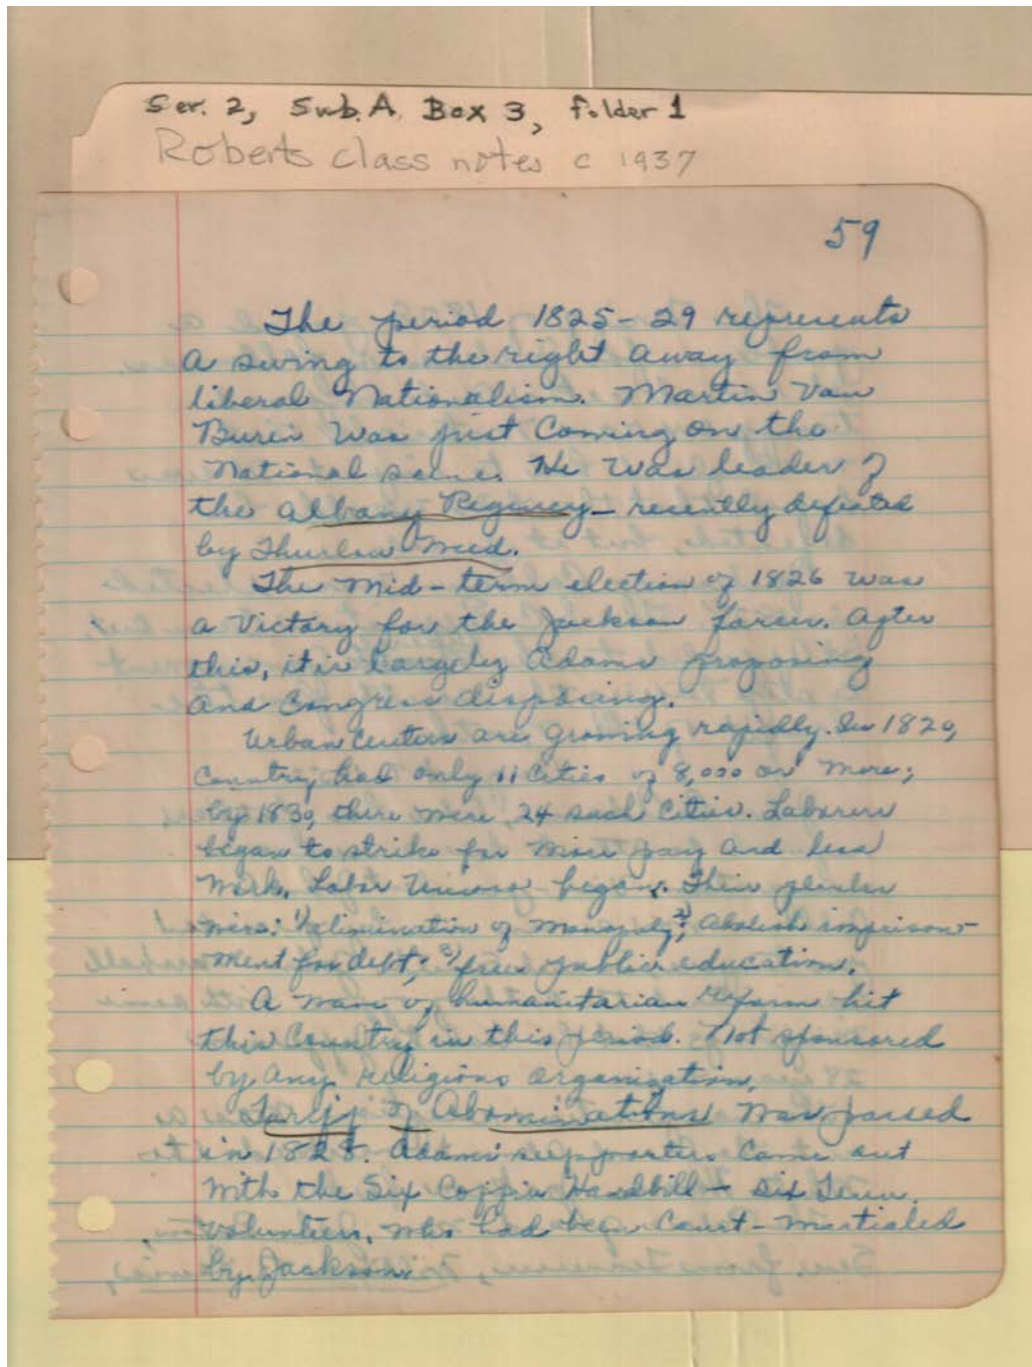 Ser. 2, Sub. A. Box 3, folder 1
Roberts class notes c 1937
59
The period 1825-29 represents
a swing to the right away from
liberal Nationalism. Martin Van
Buren was just coming on the
National scene. He was leader of
the Albany Regency - recently defeated
by Thurlow Weed.
The mid-term election of 1826 was
a victory for the Jackson forces. After
this, it is largely Adams proposing
and Congress disposing.
Urban centers are growing rapidly. In 1820,
Country had only 11 cities of 8,000 or more;
by 1830, there were 24 such cities. Laborers
began to strike for more pay and less
work. Labor Unions began. Their planks
were: 1) elimination of monopoly; 2) Abolish imprison-
ment for debt; 3) free public education.
A wave of humanitarian reform hit
this Country in this period. Not sponsored
by any religious organization.
Tariff of Abominations was passed
in 1828. Adams supporters came out
with the Six Coffin Handbill - six Tenn.
volunteers, who had been court-martialed
by Jackson.